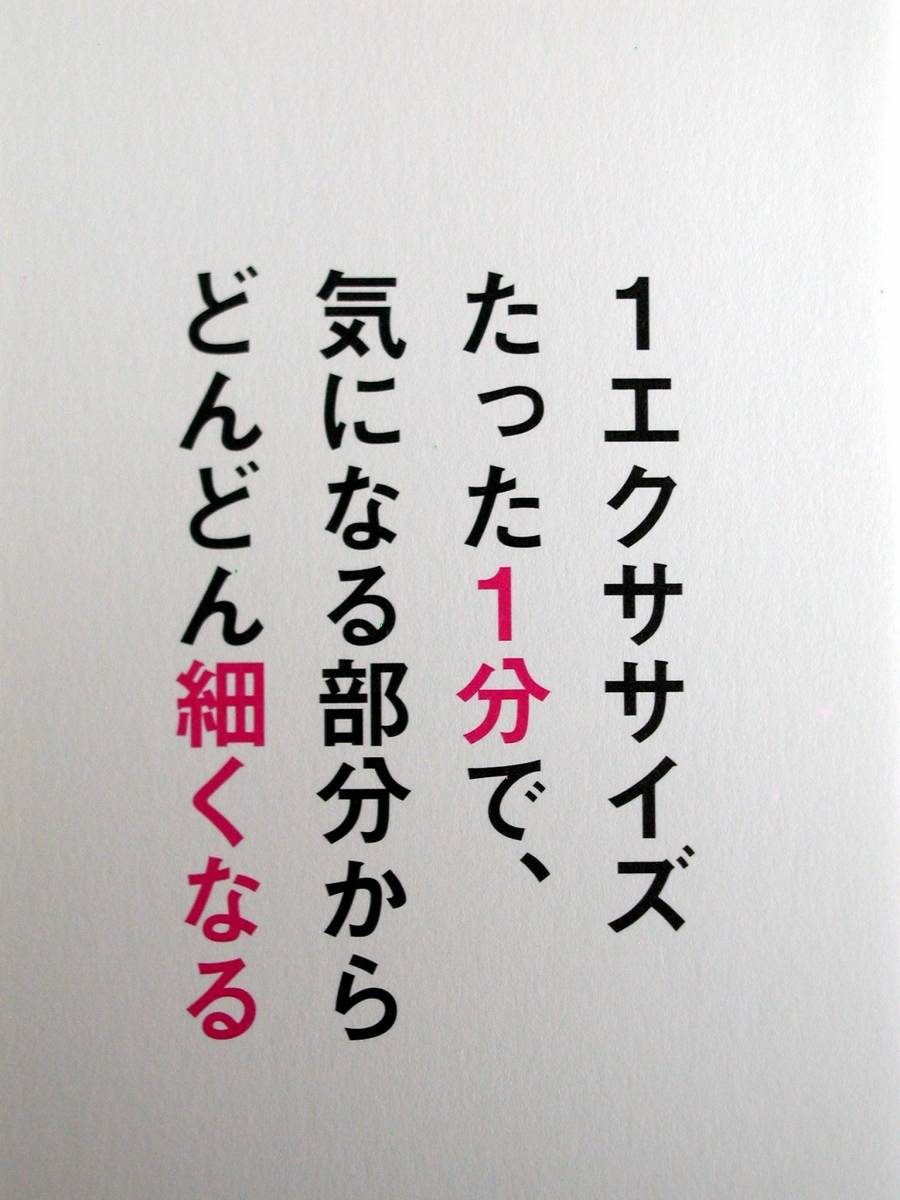 1エクササイズ
たった1分で、
気になる部分から
どんどん細くなる